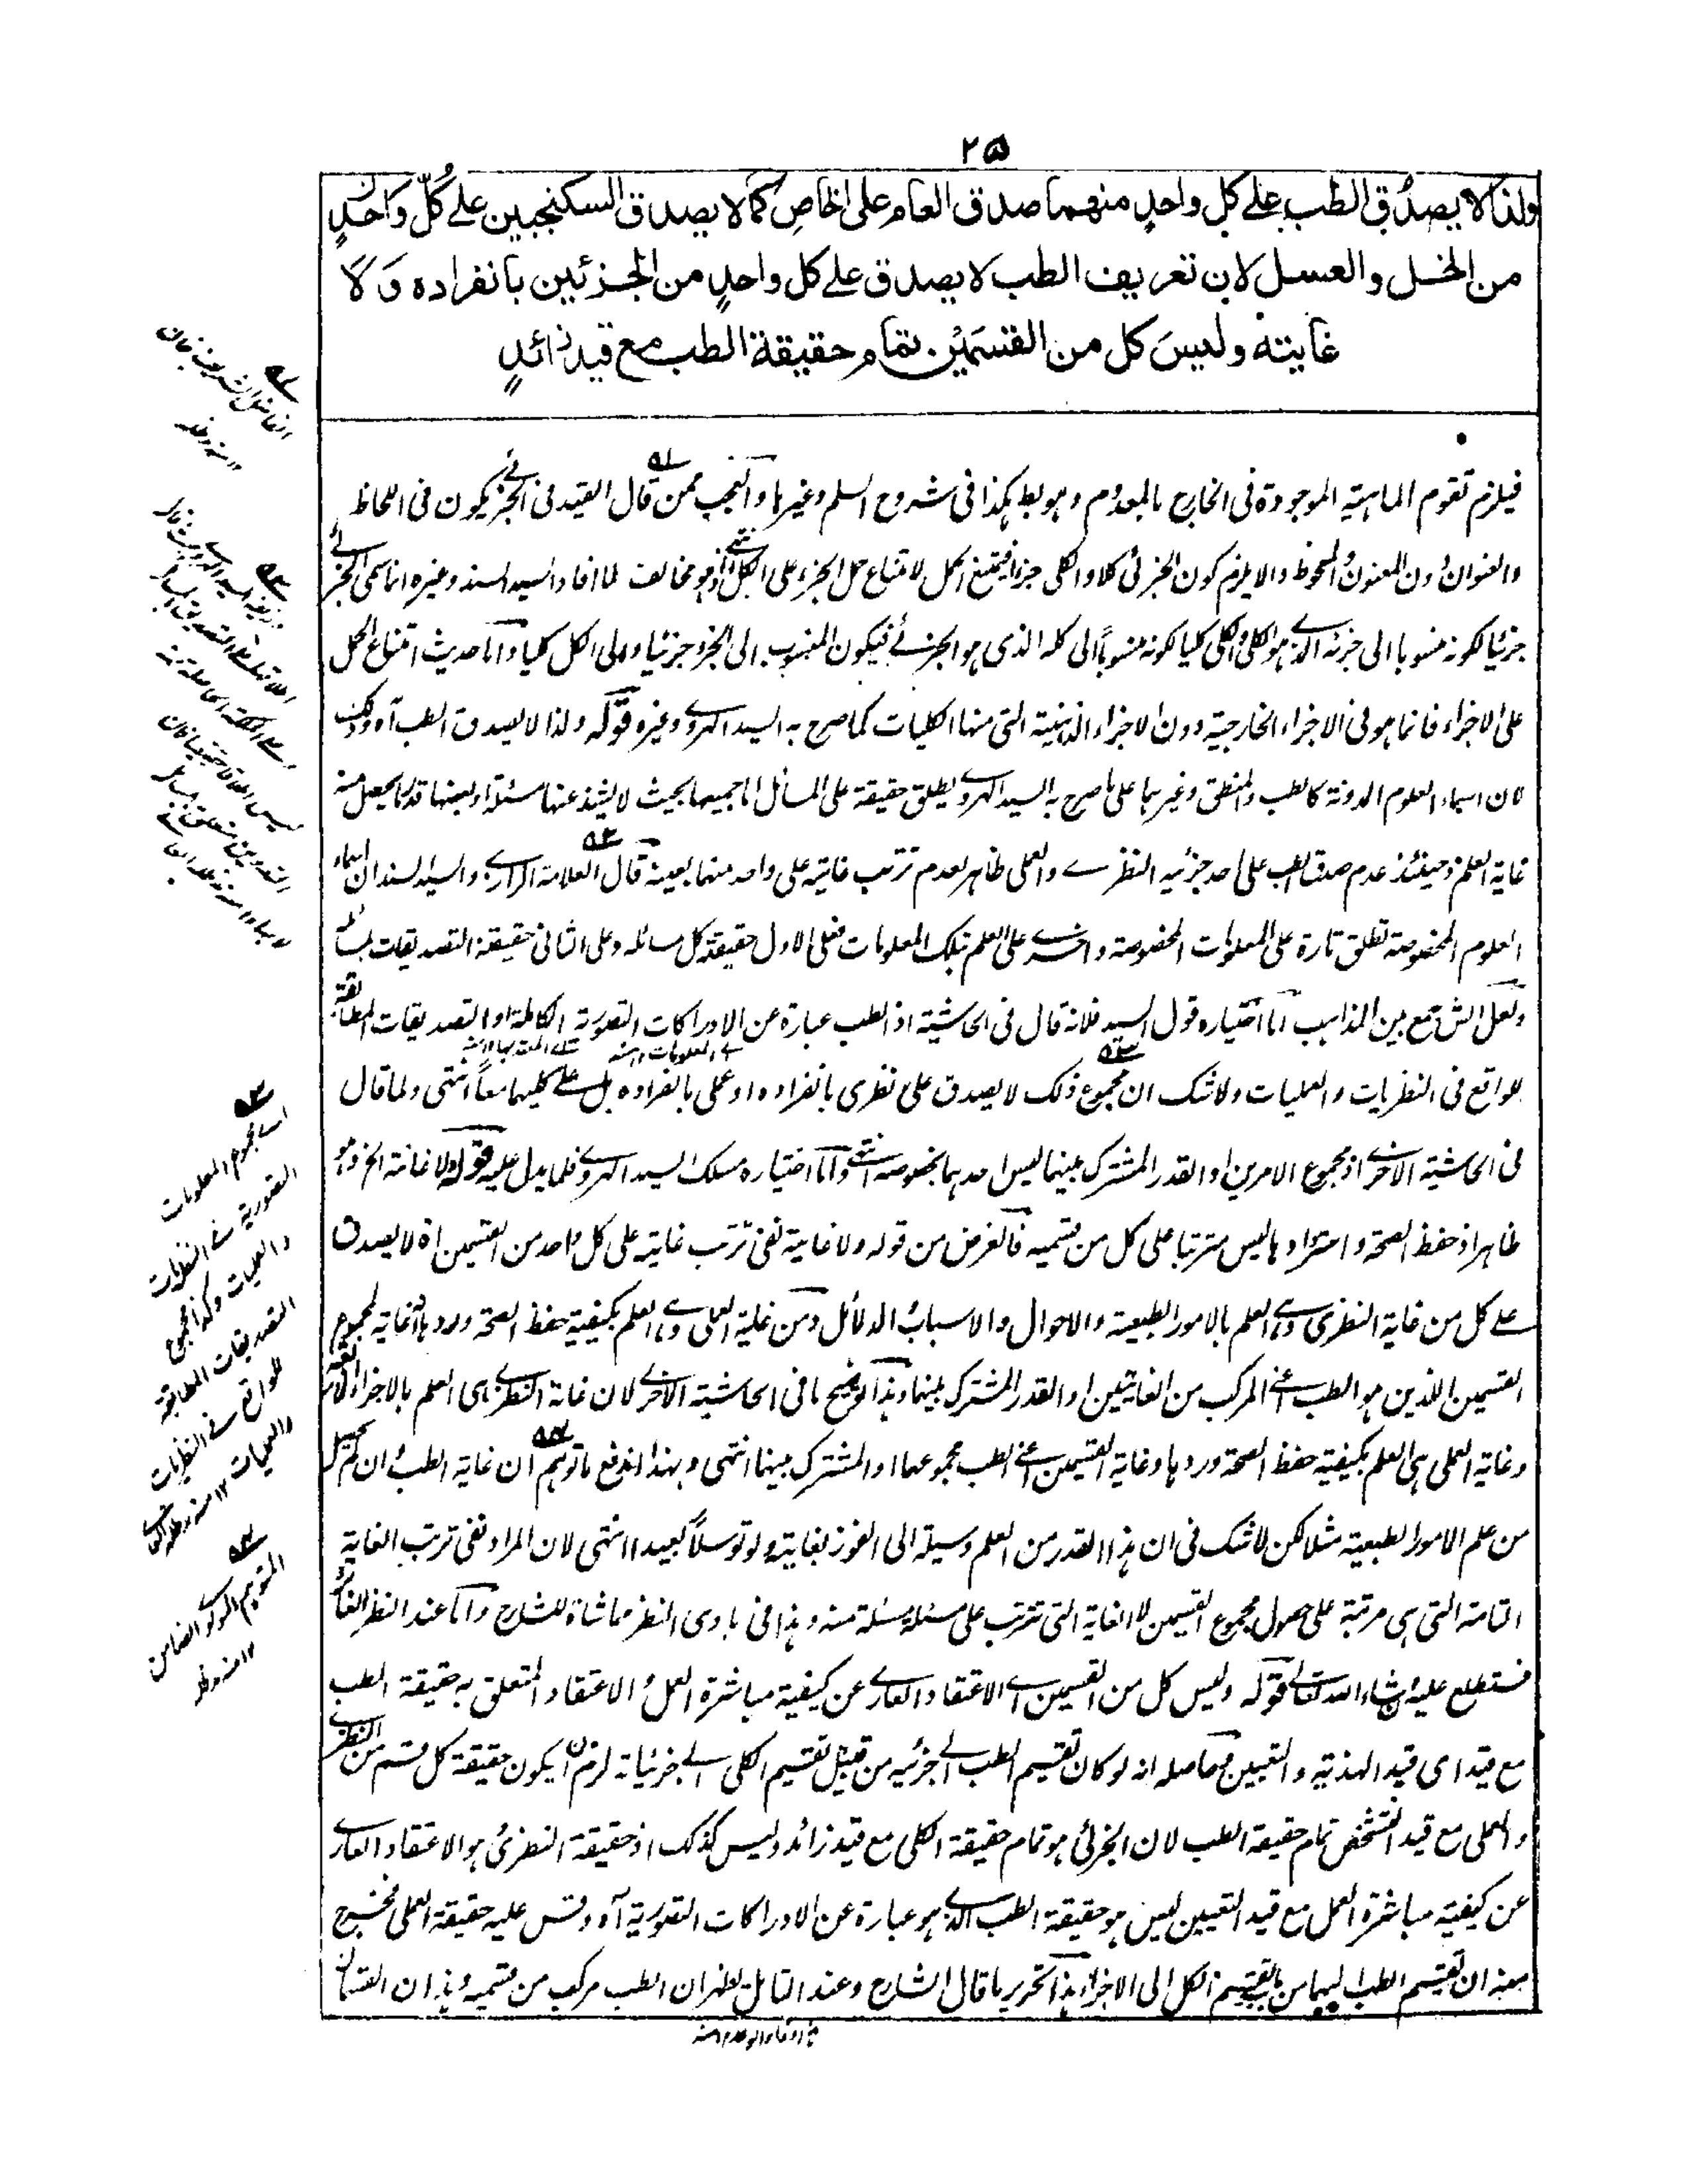 ٢٥
ولذا لا يصدُق الطب على كل واحدٍ منهما صدق العام على الخاص كما لا يصدق السكنجبين على كُلّ واحدٍ
من الخل والعسل لان تعريف الطب لا يصدق على كل واحدٍ من الجزئين بانفراده وَلا
غايته وليسَ كل من القسمَيْن تمام حقيقة الطب مع قيد زائدٍ
فيلزم تقوم الماهية الموجودة فى الخارج بالمعدوم وهو بط هكذا فى شروح السلم وغيرها والعجب ممن قال القيد فى الجزئى يكون فى اللحاظ
والعنوان دون المعنون والملحوظ والا يلزم كون الجزئى كلا والكلى جزءا فيمتنع الحمل لامتناع حمل الجزء على الكل انتهى وهو مخالف لما افاد السيد السند وغيره انما سمى الجزئى
جزئيا لكونه منسوبا الى جزئه الذى هو الكلى والكلى كليا لكونه منسوباً الى كله الذى هو الجزئى فيكون المنسوب الى الجزء جزئيا والى الكل كليا واما حديث امتناع الحمل
على الاجزاء فانما هو فى الاجزاء الخارجية دون الاجزاء الذهنية التى منها الكليات كما صرح به السيد الهروى وغيره قوله ولذا لا يصدق الطب آه وذلك
لان اسماء العلوم المدونة كالطب والمنطق وغيرهما على ما صرح به السيد الهروى يطلق حقيقة على المسائل اما جميعها بحيث لا يشذ عنها مسئلة او بعضها قدر ما يحصل منه
غاية العلم وحينئذ عدم صدق الطب على احد جزئيه النظرى والعملى ظاهر لعدم ترتب غايته على واحد منهما بعينه قال العلامة الرازى والسيد السند ان اسماء
العلوم المخصوصة تطلق تارة على المعلومات المخصوصة واخرى على العلم بتلك المعلومات فعلى الاول حقيقة كل مسائله وعلى الثانى حقيقة التصديقات بمسائله
ولعل الش جمع بين المذاهب اما اختياره قول السيد فلانه قال فى الحاشية اذ الطب عبارة عن الادراكات التصورية الكاملة او التصديقات المطابقة
للواقع فى النظريات والعمليات ولا شك ان مجموع ذلك لا يصدق على نظرى بانفراده او عملى بانفراده بل على كليهما معاً انتهى ولما قال
فى الحاشية الاخرى اذ مجموع الامرين او القدر المشترك بينهما ليس احدهما بخصوصه انتهى واما اختياره مسلك السيد الهروى فلما يدل عليه قوله ولا غايته الخ وهو
ظاهر اذ حفظ الصحة واستردادها ليس مترتبا على كل من قسميه فالغرض من قوله ولا غايته نفى ترتب غايته على كل واحد من القسمين اذ لا يصدق
على كل من غاية النظرى وهى العلم بالامور الطبيعية والاحوال والاسباب والدلائل ومن غاية العملى وهى العلم بكيفية حفظ الصحة وردها غاية لمجموع
القسمين اللذين هو الطب اعنى المركب من الغايتين او القدر المشترك بينهما وهذا توضيح ما فى الحاشية الاخرى لان غاية النظرى هى العلم بالاجزاء
وغاية العملى هى العلم بكيفية حفظ الصحة وردها وغاية القسمين اعنى الطب مجموعهما او المشترك بينهما انتهى وبهذا اندفع ما توهم ان غاية الطب وان لم تحصل
من علم الامور الطبيعية مثلا لكن لا شك فى ان هذا القدر من العلم وسيلة الى الفوز بغايته ولو توسلاً بعيدا انتهى لان المراد نفى ترتب الغاية
التامة التى هى مرتبة على حصول مجموع القسمين لا الغاية التى تترتب على مسئلة مسئلة منه وهذا فى بادى النظر مماشاة للشارح واما عند النظر الغائر
فستطلع عليه ان شاء الله تعالى قوله وليس كل من القسمين اى الاعتقاد العارى عن كيفية مباشرة العمل والاعتقاد المتعلق به حقيقة الطب
مع قيد اى قيد الهذية والتعيين وحاصله انه لو كان تقسيم الطب الى جزئيه من قبيل تقسيم الكلى الى جزئياته لزم ان يكون حقيقة كل قسم من النظرى
والعملى مع قيد التشخص تمام حقيقة الطب لان الجزئى هو تمام حقيقة الكلى مع قيد زائد وليس كذلك اذ حقيقة النظرى هو الاعتقاد العارى
عن كيفية مباشرة العمل مع قيد التعيين ليس هو حقيقة الطب الذى هو عبارة عن الادراكات التصورية آه وقس عليه حقيقة العملى فخرج
منه ان تقسيم الطب اليهما من تقسيم الكل الى الاجزاء هذا تحرير ما قال الشارح وعند التامل يظهر ان الطب مركب من قسميه وهذان القسمان
اى مجموع المعلومات
التصورية فى النظريات
والعمليات وكذا مجموع
التصديقات المطابقة
للواقع فى النظريات
والعمليات ١٢ منه
المتوهم المولوى الضامن
١٢ منه